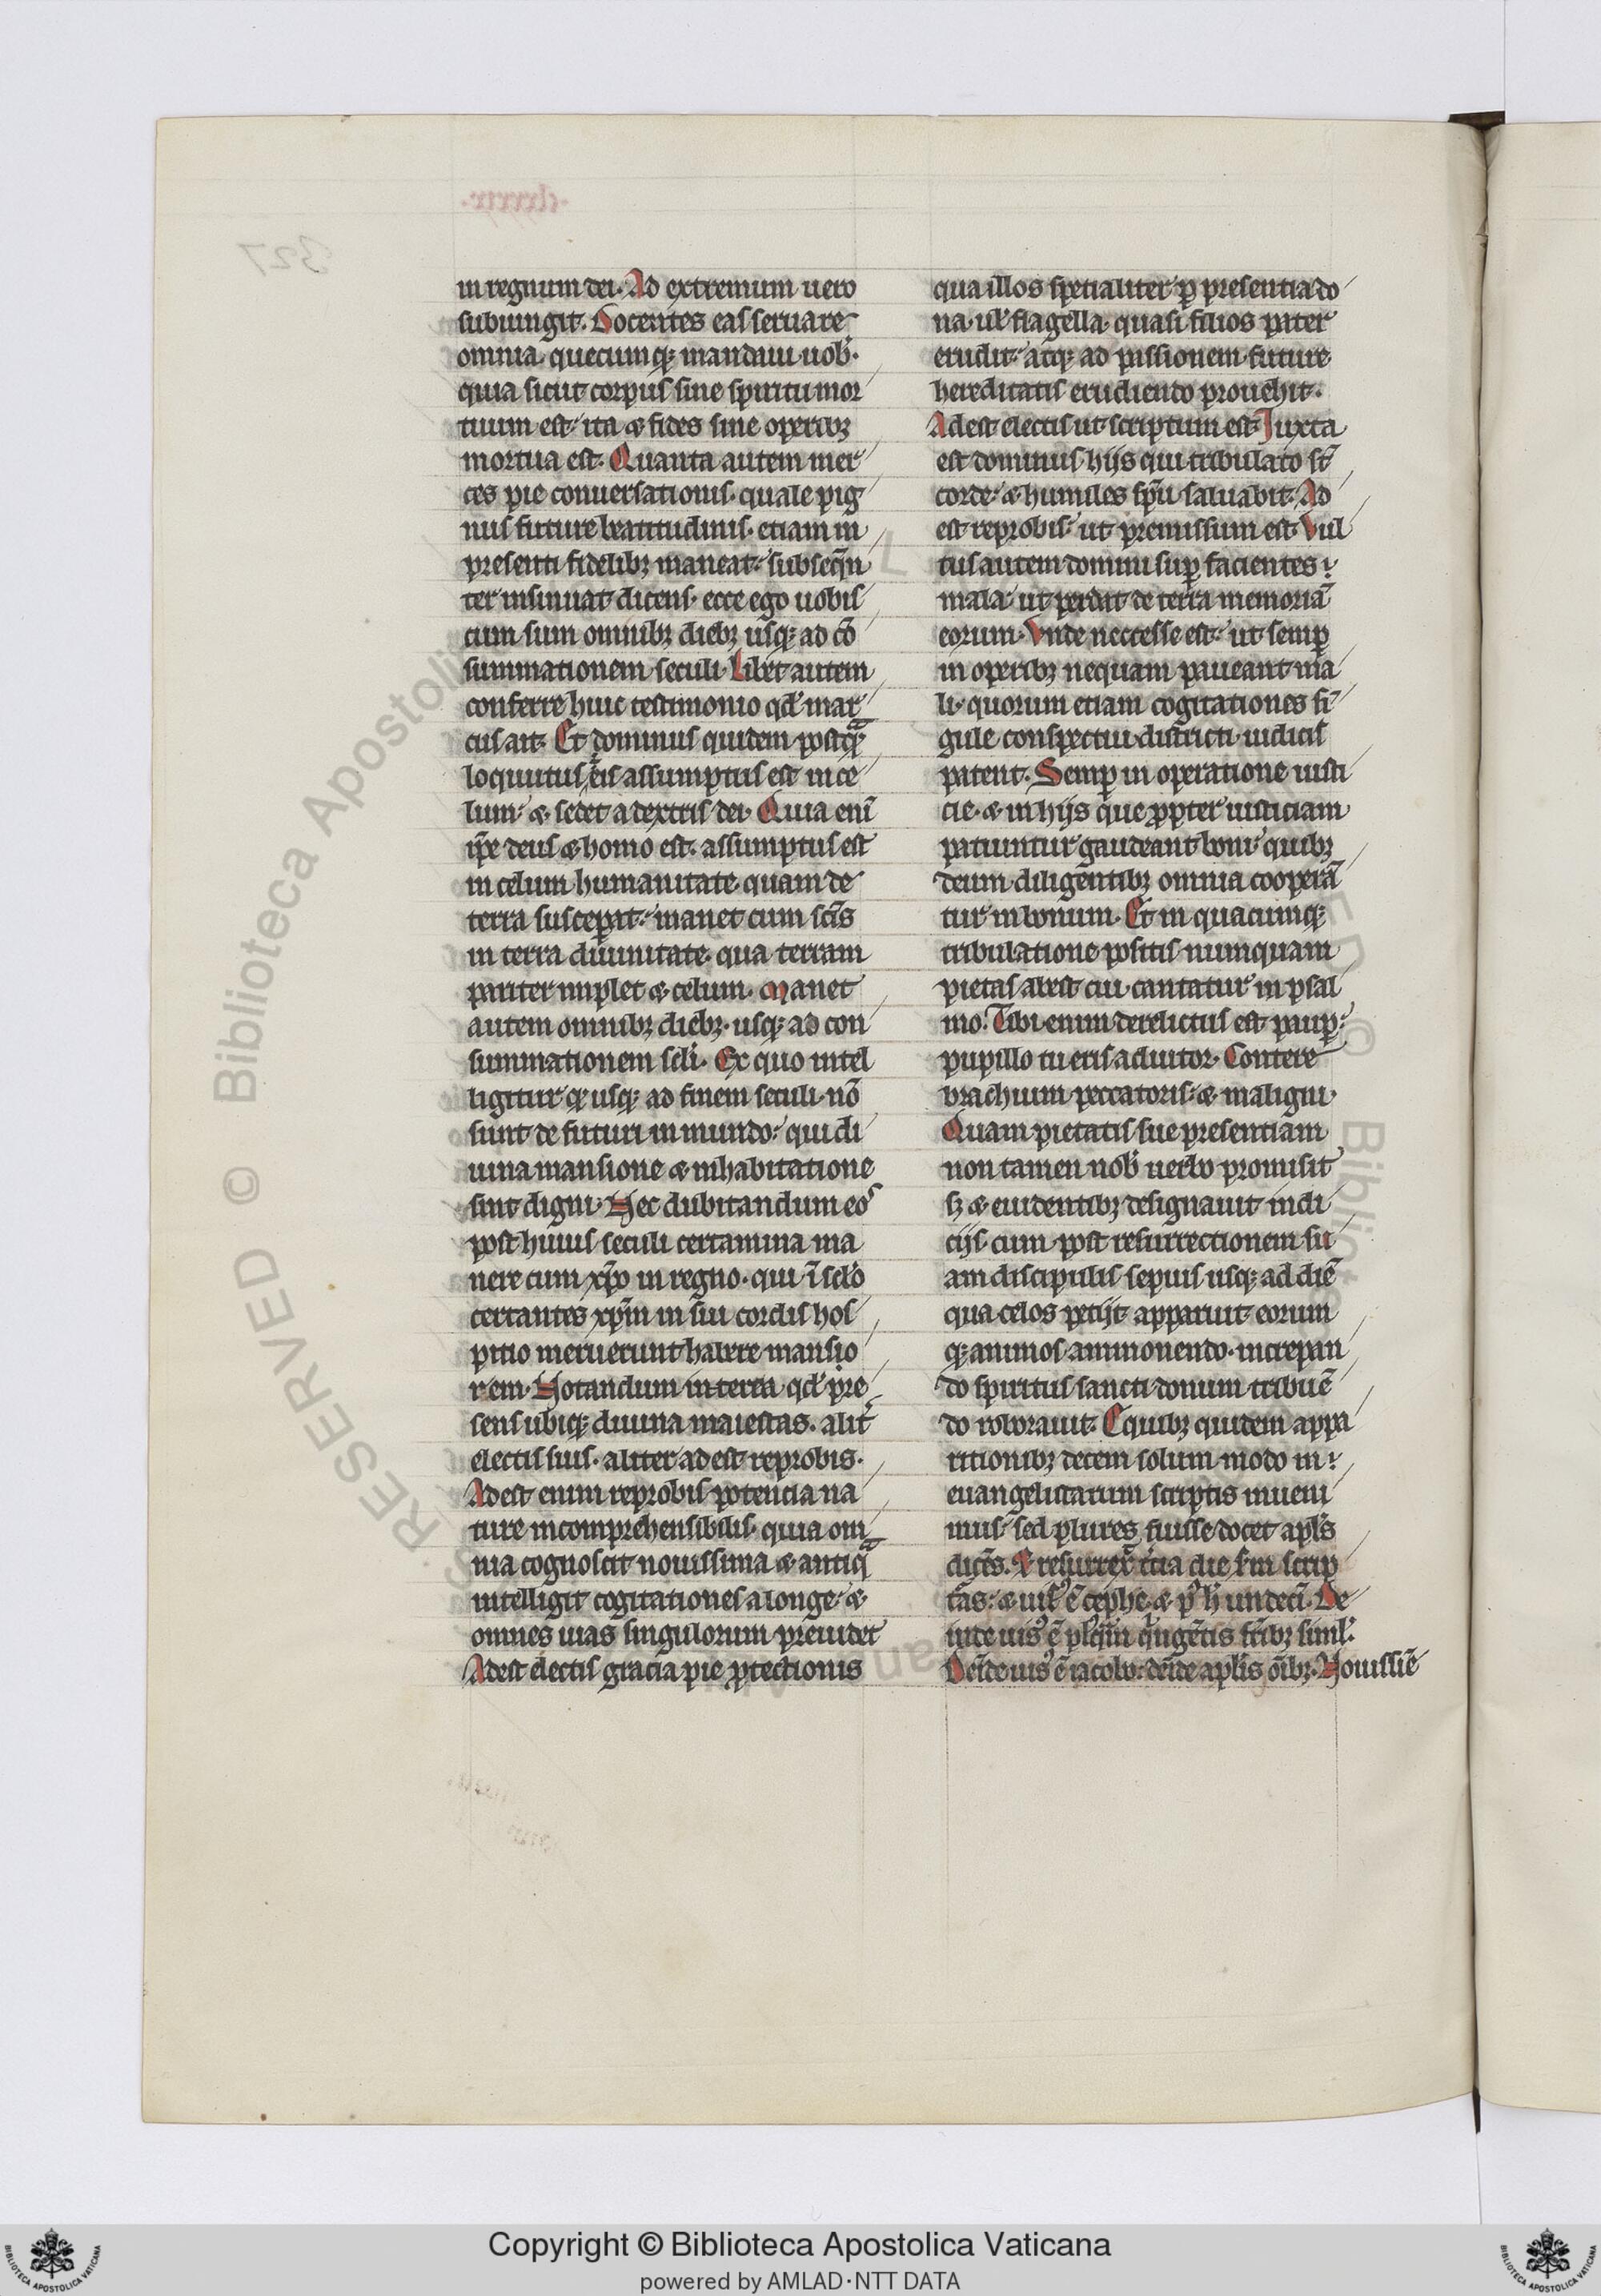 in regnum dei. Ad extremum uero
subiungit. Docentes eas seruare
omnia. quecumqꝫ mandaui uob̄.
quia sicut corpus sine spiritu mor
tuum est: ita ⁊ fides sine operibꝫ
mortua est. Quanta autem mer
ces pie conuersationis. quale pig
nus future beatitudinis. etiam in
presenti fidelibꝫ maneat: subseq̄n
ter insinuat dicens. ecce ego uobis
cum sum omnibꝫ diebꝫ usqꝫ ad cō
summationem seculi. Libet autem
conferre huic testimonio qd̓ mar
cus ait. Et dominus quidem postqᷓ
loquutus ē eis assumptus est in ce
lum: ⁊ sedet a dextris dei. Quia enī
ip̄e deus ⁊ homo est. assumptus est
in celum humanitate. quam de
terra susceperat: manet cum sc̄is
in terra diuinitate. qua terram
pariter implet ⁊ celum. Manet
autem omnibꝫ diebꝫ. usqꝫ ad con
summationem scl̓i. Ex quo intel
ligitur qꝫ usqꝫ ad finem seculi. nō
sunt de futuri in mundo: qui di
uina mansione ⁊ inhabitatione
sint digni. Nec dubitandum eos
post huius seculi certamina ma
nere cum xp̄o in regno. qui ī scl̓o
certantes xp̄m in sui cordis hos
pitio meruerunt habere mansio
rem. Notandum interea qd̓ pre
sens ubiqꝫ diuina maiestas. alit̓
electis suis. aliter adest reprobis.
Adest enim reprobis potencia na
ture incomprehensibilis. quia om
nia cognoscit nouissima ⁊ antiqᷓ
intelligit cogitationes a longe: ⁊
omnes uias singulorum preuidet
Adest electis gracia pie ꝓtectionis
qua illos specialiter ꝑ presentia do
na. ul̓ flagella. quasi filios pater
erudit: atqꝫ ad passionem future
hereditatis erudiendo prouehit.
Adest electis ut scriptum est. Juxta
est dominus hijs qui tribulato st̄
corde: ⁊ humiles sp̄u saluabit. Ad
est reprobis: ut premissum est. Vul
tus autem domini suꝑ facientes
mala: ut perdat de terra memoriā
eorum. Vnde neccesse est: ut semꝑ
in operibꝫ nequam paueant ma
li. quorum etiam cogitationes sī
gule conspectui districti iudicis
patent. Semꝑ in operatione iusti
cie. ⁊ in hijs que ꝓpter iusticiam
patiuntur gaudeant boni: quibꝫ
deum diligentibꝫ omnia cooperā
tur in bonum. Et in quacumqꝫ
tribulatione positis numquam
pietas abest cui cantatur in psal
mo. Tibi enim derelictus est pauꝑ:
pupillo tu eris adiutor. Contere
brachium peccatoris: ⁊ maligni.
Quam pietatis sue presentiam
non tamen nob̄ uerbo promisit
sꝫ ⁊ euidentibꝫ designauit indi
cijs. cum post resurrectionem su
am discipulis sepius usqꝫ ad diē
qua celos petijt apparuit eorum
qꝫ animos ammonendo. increpan
do spiritus sancti donum tribuē
do roborauit. E quibꝫ quidem appa
ritionibꝫ decem solum modo in
euangelistarum scriptis inueni
mus: sed plures fuisse docet apl̓s
dicēs. resurrex̄ t̓cia die sc̄m scrip
t̄as: ⁊ uis̓ ē cephe. ⁊ p̓ h̓ undecī. De
inde uis̓ ē pl̓qm̄ q̓ngētis fr̄ibꝫ siml̓.
Deīde uis̓ ē iacobo: deīde apl̓is oībꝫ. Nouissie̅